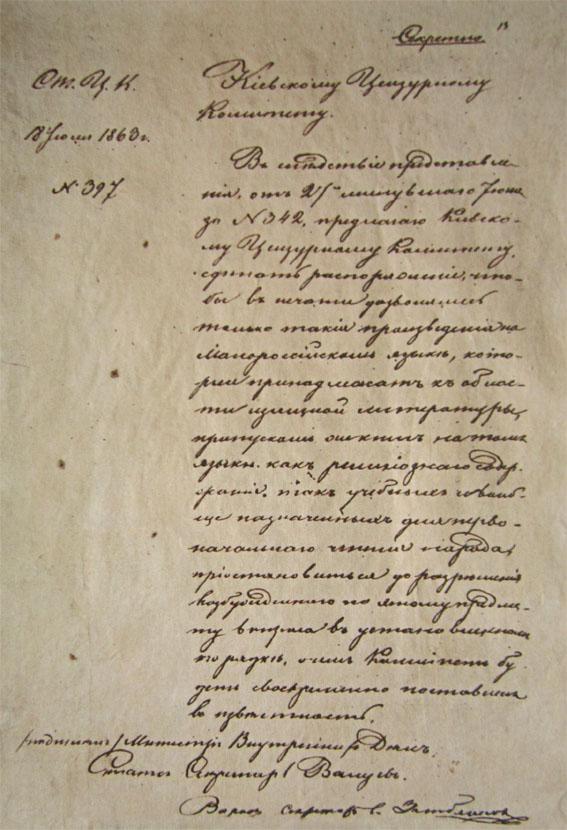 Секретно.
Кіевскому Цензурному
Комитету.
Ц. К.
18 Июля 1863 г.
№ 397
Въ слѣдствіе представле-
нія, отъ 27го минувшаго Іюня
за № 342, предлагаю Кіевско-
му Цензурному Комитету,
сдѣлать распоряженіе, что-
бы въ печати дозволялись
только такія произведенія на
Малороссійскомъ языкѣ, кото-
рыя принадлежатъ къ облас-
ти изящной литературы;
пропускомъ же книгъ на томъ
языкѣ, какъ религіознаго содер-
жанія, такъ учебныхъ и вооб-
ще назначенныхъ для перво-
начальнаго чтенія народа,
пріостановиться до разрѣшенія
возбужденнаго по этому предме-
ту вопроса въ установленномъ
порядкѣ, о чемъ Комитетъ бу-
детъ своевременно поставленъ
въ извѣстность.
/подписалъ/ Министръ Внутреннихъ Дѣлъ,
Статсъ Секретарь Валуевъ.
Секретарь